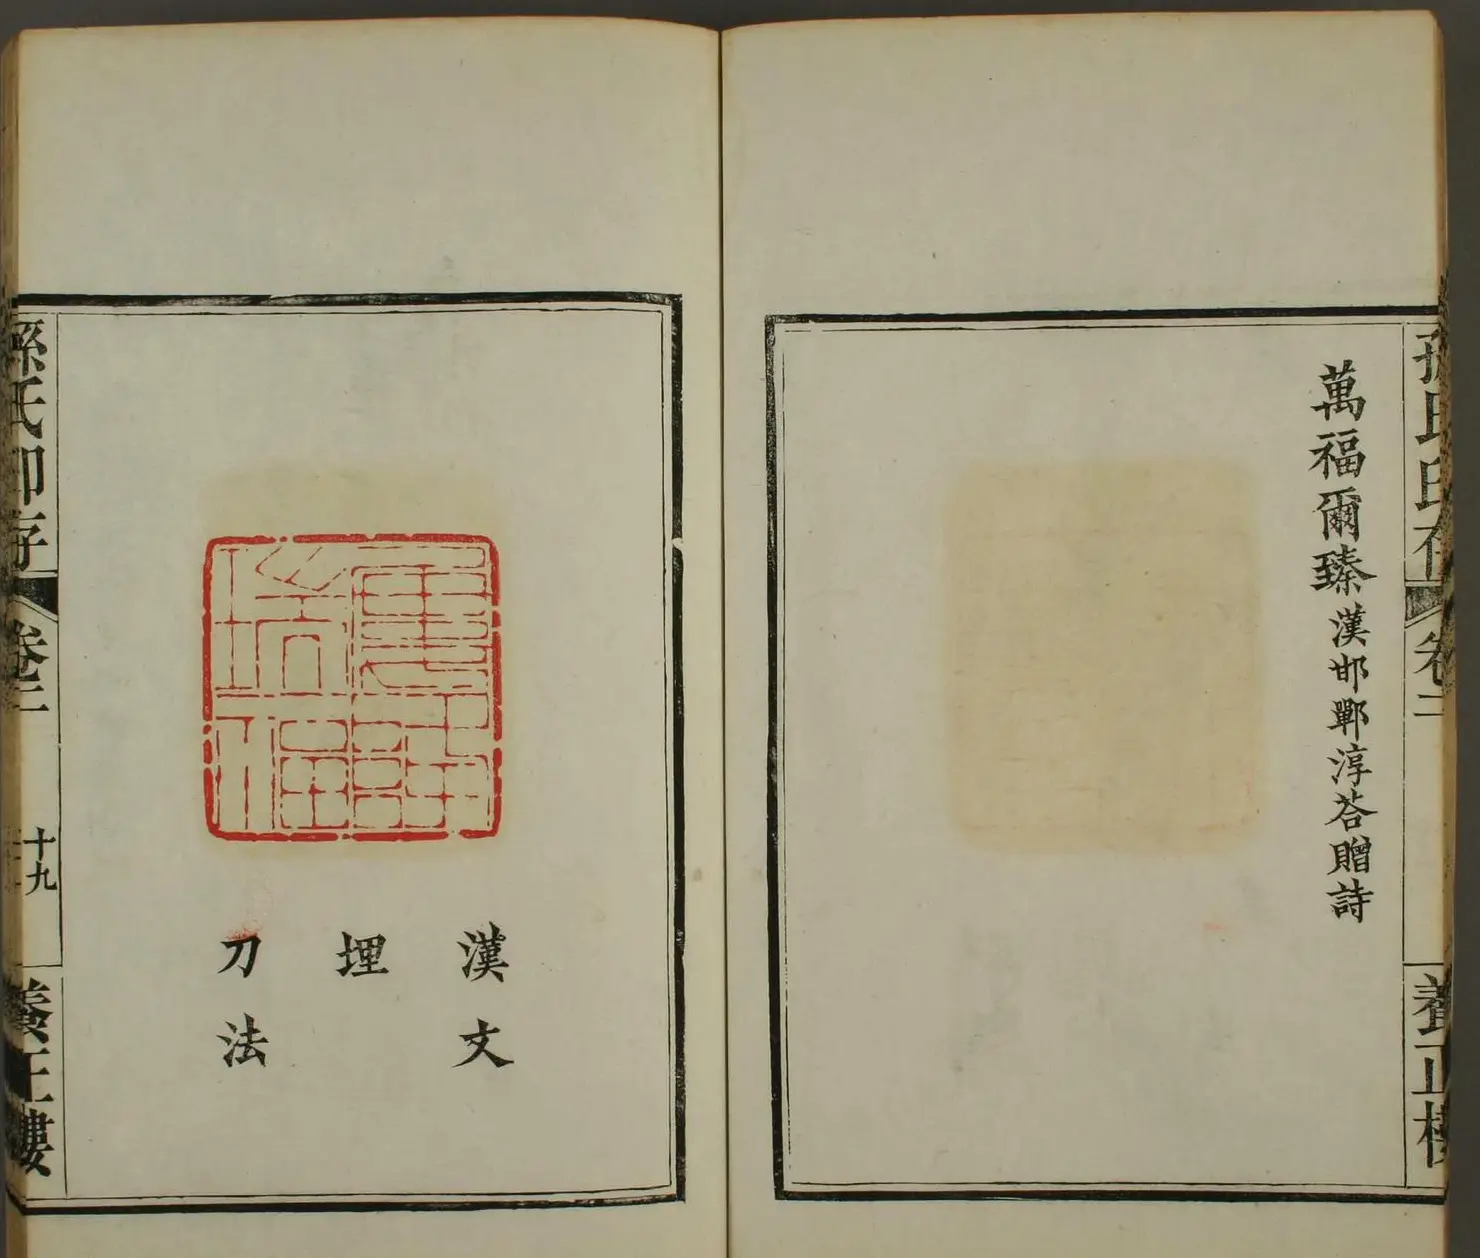 孫氏印存
卷二
養正樓
萬福爾臻漢邯鄲淳荅贈詩
漢文
埋
刀法
孫氏印存
卷二
十九
養正樓